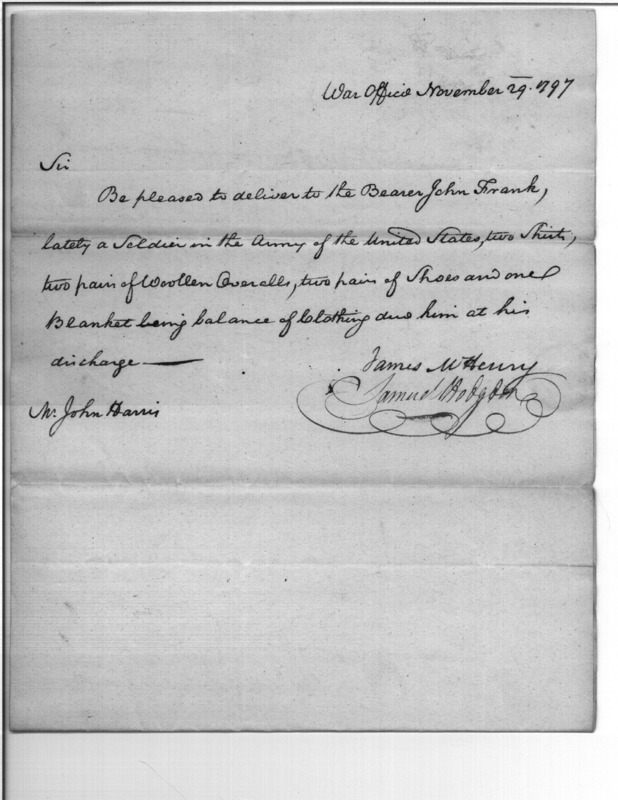 War Office November 29. 1797
Sir
Be pleased to deliver to the Bearer John Frank,
lately a Soldier in the Army of the United States, two Shirts,
two pairs of Woollen Overalls, two pairs of Shoes and one
Blanket being balance of Clothing due him at his
discharge —
James McHenry
Samuel Hodgdon
Mr. John Harris